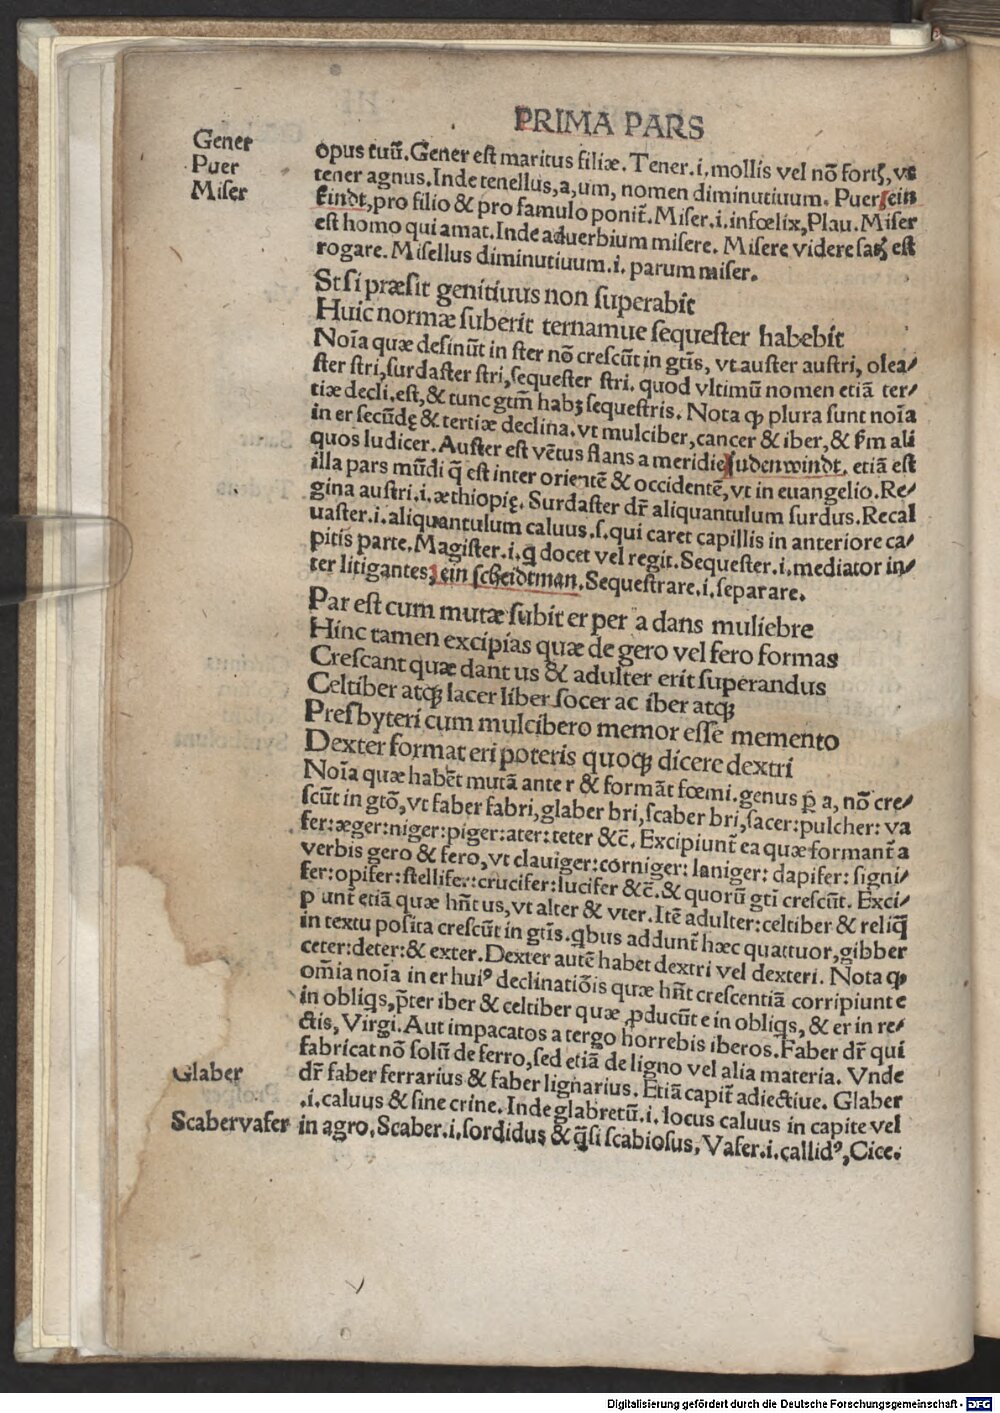 PRIMA PARS
Gener
Puer
Miser
opus tuū. Gener eſt maritus filiæ. Tener .i. mollis vel nō fortꝭ, vt
tener agnus. Inde tenellus, a, um, nomen diminutiuum. Puer ein
kindt, pro filio & pro famulo poniť. Miſer .i. infœlix, Plau. Miſer
eſt homo qui amat. Inde aduerbium miſere. Miſere videre ſatꝭ eſt
rogare. Miſellus diminutiuum .i. parum miſer.
St ſi præſit genitiuus non ſuperabit
Huic normæ ſuberit ternamue ſequeſter habebit
Noīa quæ deſinūt in ſter nō creſcūt in gtīs, vt auſter auſtri, olea/
ſter ſtri, ſurdaſter ſtri, ſequeſter ſtri. quod vltimū nomen etiā ter/
tiæ decli. eſt, & tunc gtīm habꝫ ſequeſtris. Nota ꝙ plura ſunt noīa
in er ſecūdę & tertiæ declina. vt mulciber, cancer & iber, & ẜm ali
quos ludicer. Auſter eſt vētus flans a meridie ſudenwindt, etiā eſt
illa pars mūdi q̄ eſt inter orientē & occidentē, vt in euangelio. Re/
gina auſtri .i. æthiopię. Surdaſter dr̄ aliquantulum ſurdus. Recal
uaſter .i. aliquantulum caluus .ſ. qui caret capillis in anteriore ca/
pitis parte. Magiſter .i. q̇ docet vel regit. Sequeſter .i. mediator in/
ter litigantes ein ſcheidtman. Sequeſtrare .i. ſeparare.
Par eſt cum mutæ ſubit er per a dans muliebre
Hinc tamen excipias quæ de gero vel fero formas
Creſcant quæ dant us & adulter erit ſuperandus
Celtiber atqꝫ lacer liber ſocer ac iber atqꝫ
Preſbyteri cum mulcibero memor eſſe memento
Dexter format eri poteris quoqꝫ dicere dextri
Noīa quæ habēt mutā ante r & formāt fœmi. genus ꝑ a, nō cre/
ſcūt in gtō, vt faber fabri, glaber bri, ſcaber bri, ſacer: pulcher: va
fer: æger: niger: piger: ater: teter &c̄. Excipiunť ea quæ formanť a
verbis gero & fero, vt clauiger: corniger: laniger: dapifer: ſigni/
fer: opifer: ſtellifer: crucifer: lucifer &c̄. & quorū gtī creſcūt. Exci/
p unť etiā quæ hn̄t us, vt alter & vter. Itē adulter: celtiber & reliq̄
in textu poſita creſcūt in gtīs. q̇bus addunť hæc quattuor, gibber
ceter: deter: & exter. Dexter autē habet dextri vel dexteri. Nota ꝙ
om̄ia noīa in er hui⁹ declinatiōis quæ hn̄t creſcentiā corripiunt e
in obliq̇s, p̄ter iber & celtiber quæ ꝓducūt e in obliq̇s, & er in re/
ctis, Virgi. Aut impacatos a tergo horrebis iberos. Faber dr̄ qui
fabricat nō ſolū de ferro, ſed etiā de ligno vel alia materia. Vnde
dr̄ faber ferrarius & faber lignarius. Etiā capiť adiectiue. Glaber
.i. caluus & ſine crine. Inde glabretū .i. locus caluus in capite vel
in agro. Scaber .i. ſordidus & q̄ſi ſcabioſus, Vafer .i. callid⁹, Cice.
Glaber
Scaber vafer
Digitalisierung gefördert durch die Deutsche Forschungsgemeinschaft - DFG